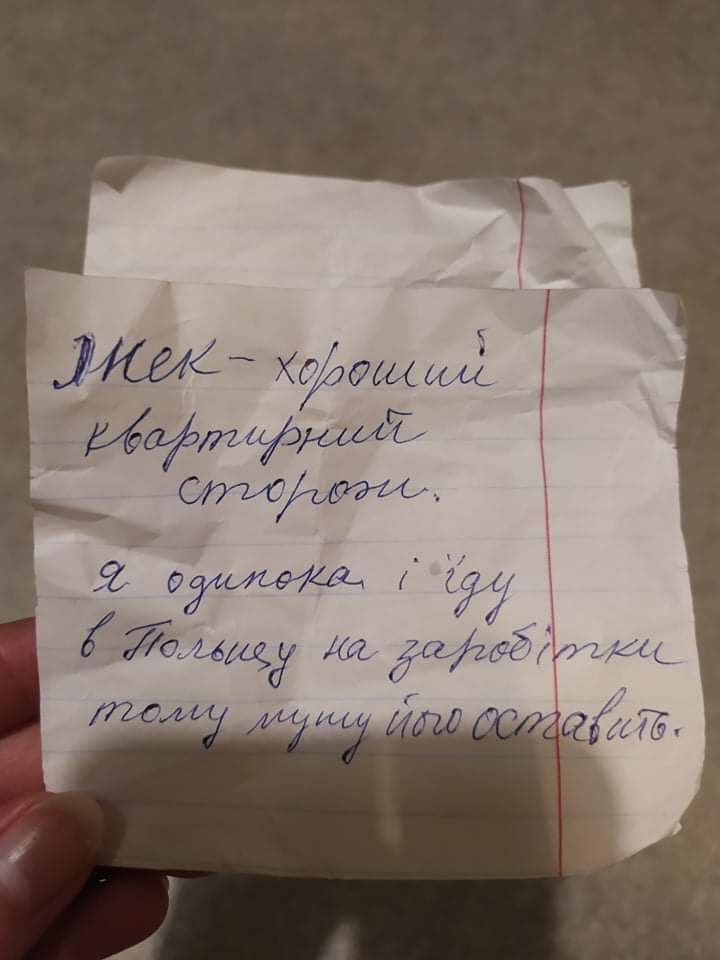 Янек - хороший
квартирний
сторож.
я одинока і їду
в Польщу на заробітки
тому мушу його оставить.